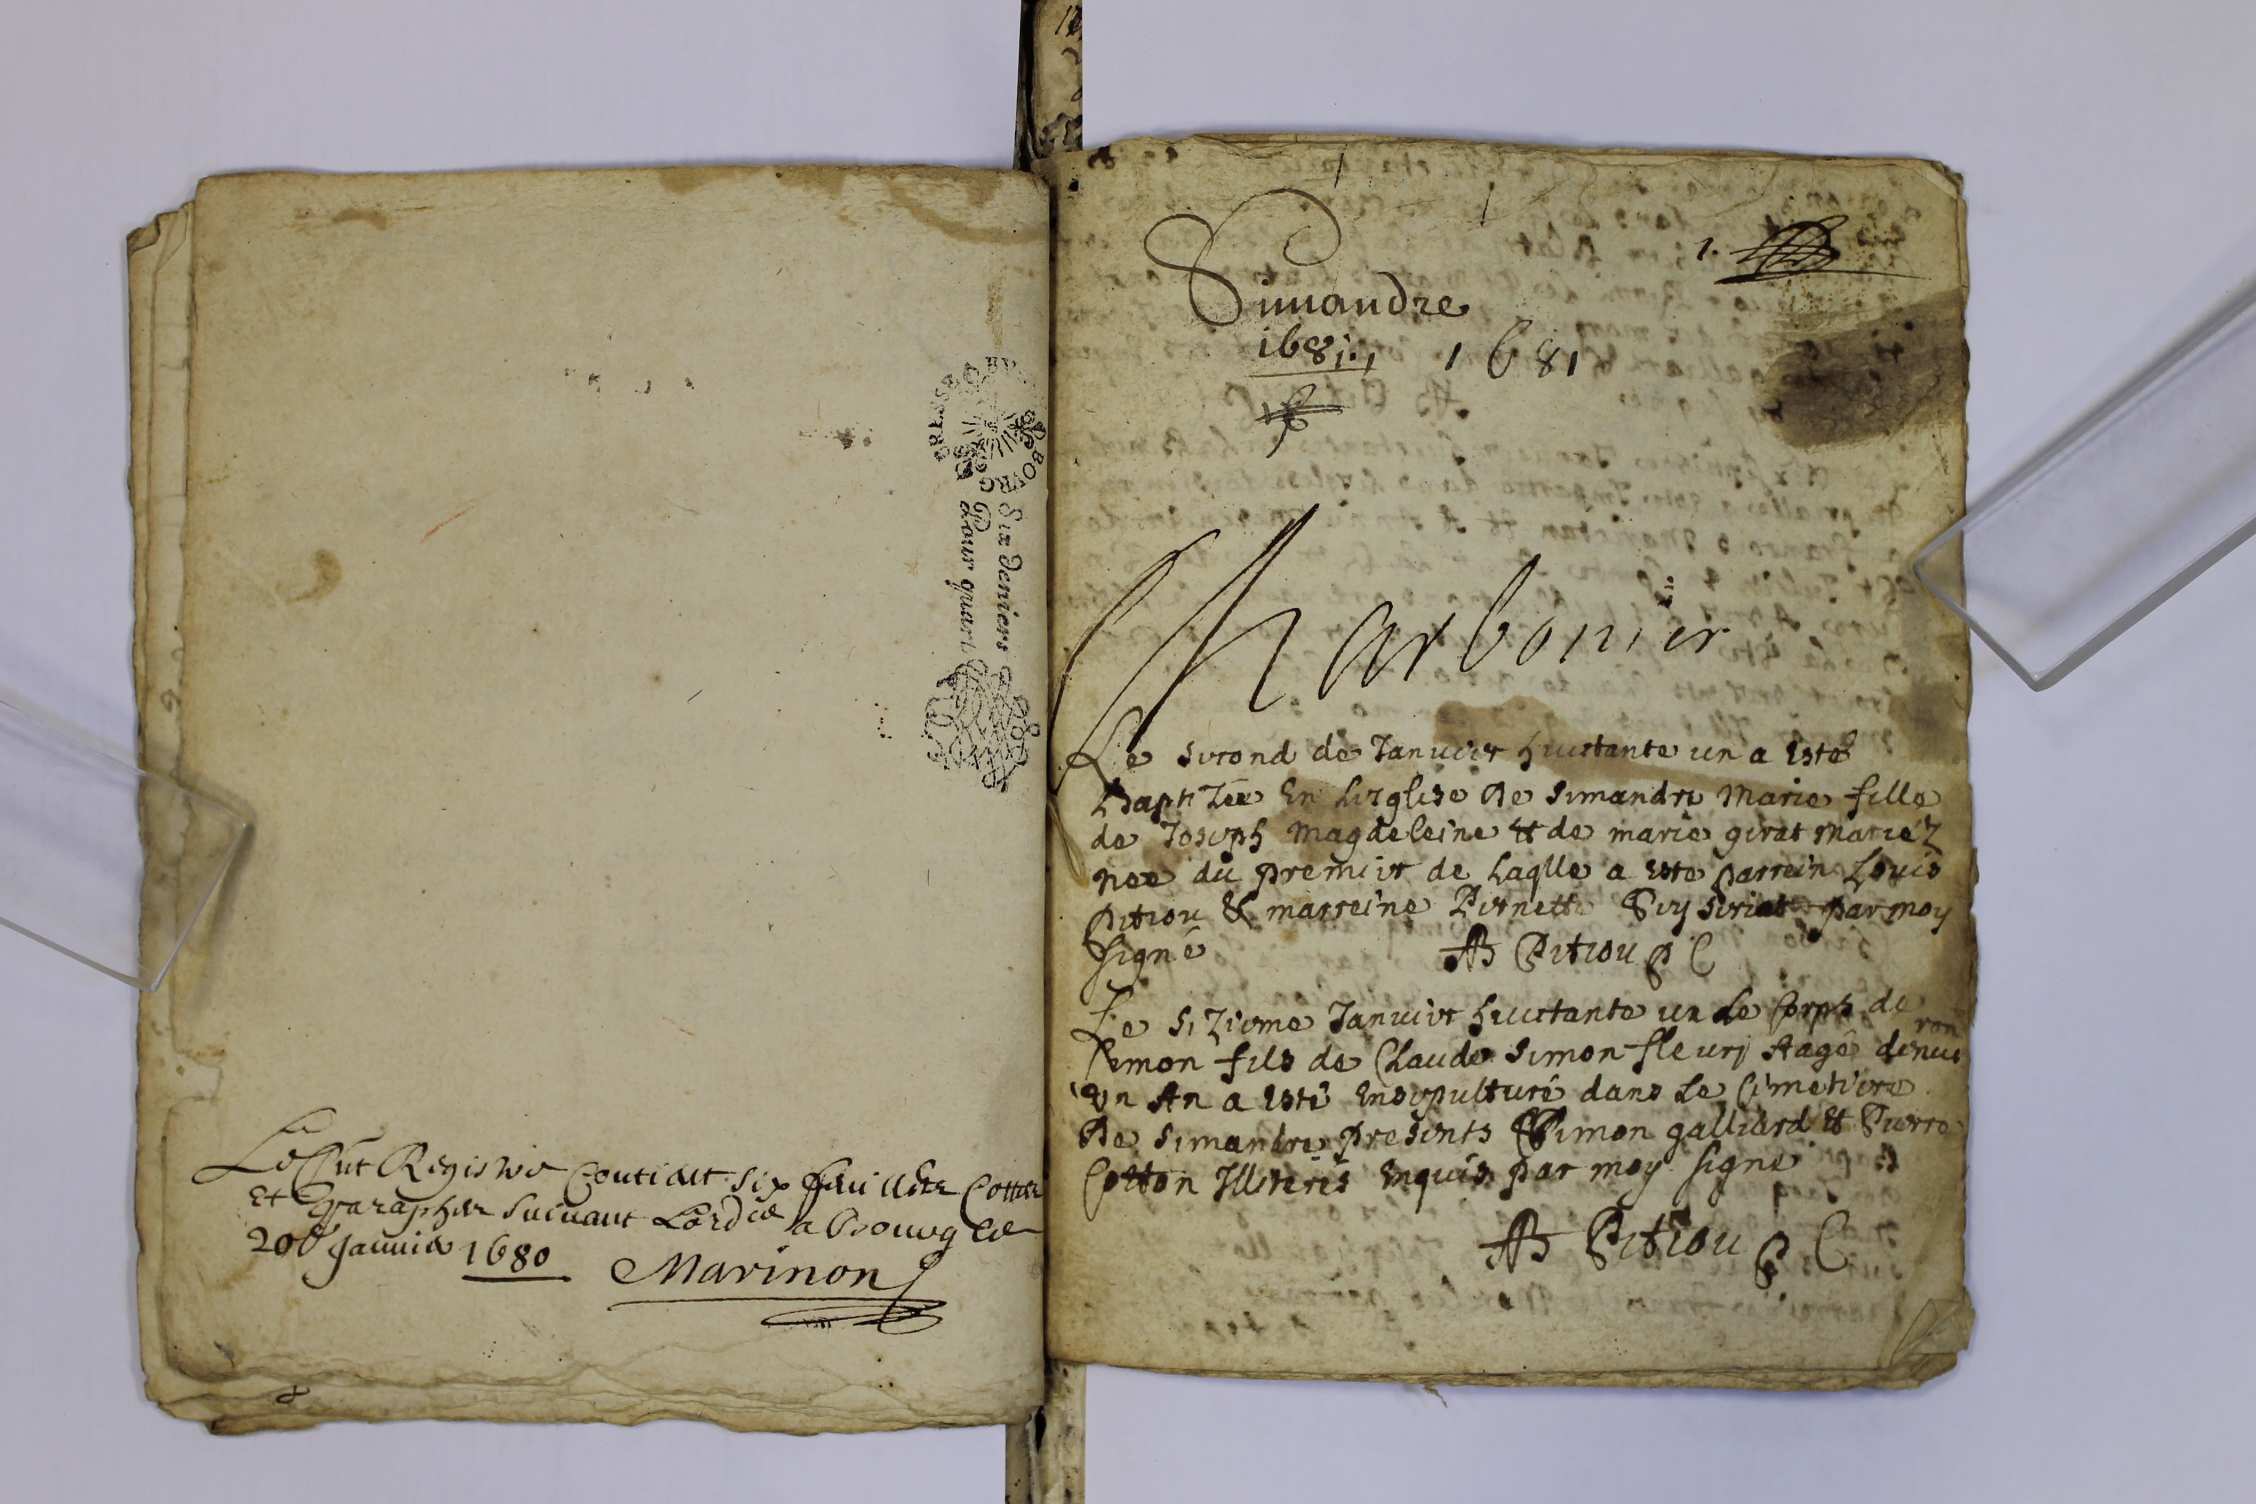 BRESSE BOVRG BOVRG
Six deniers
Pour quart
Le pnt Registre Contient six feuilletz Cottez
Et Paraphez suivant Lordce a Bourg Ce
20e Januier 1680
Marinon
1.
Simandre
1681. 1681
Charbonier
Le second de Januier huictante un a esté
baptizée En L'eglise De simandre Marie fille
de Joseph Magdeleine et de marie girat mariéz
née du premier de laqlle a esté parrein Louis
Pitiou & marreine Pernette Puy seriat par moy
signé
AB Pitiou P C
Le sizieme Januier huictante un le Corps de
simon fils de Claude Simon fleury Aagé denui
ron
un An a esté ensepulturé dans le Cimetiere
De simandre presents Simon galliard et Pierre
Cotton Illiterés enquis par moy signé
AB Pitiou P C